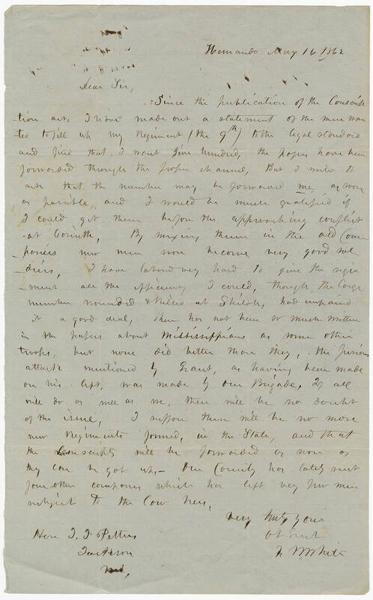 Hernando May 16 1862
Dear Sir,
Since the publication of the Conscrip
tion act, I have made out a statement of the men wan
ted to fill up my Regiment (the 9th) to the legal standard
and find that I want five hundred, the papers have been
forwarded through the proper channel, But I write to
ask that the number may be forwarded me, as soon
as possible, and I would be much gratified if
I could get them before the approaching conflict
at Corinth, By mixing them in the old Com
panies new men soon become very good sol
diers, I have labored very hard to give the regi
ment all the efficiency I could, though the large
number wounded & killed at Shiloh, had impaired
it a good deal, there has not been so much written
in the papers about Mississippians as some other
troops, but none did better than they, the furious
attack mentioned by Grant, as having been made
on his left, was made by our Brigade, If all
will do as well as we, there will be no doubt
of the issue, I suppose there will be no more
new Regiments formed, in the State, and that
the Conscripts will be forwarded as soon as
they can be got up,- Our County has lately sent
four other companies which has left very few men
subject to the Con
very truly yours
obt
T W White
Hon J. J. Pettus
Jackson